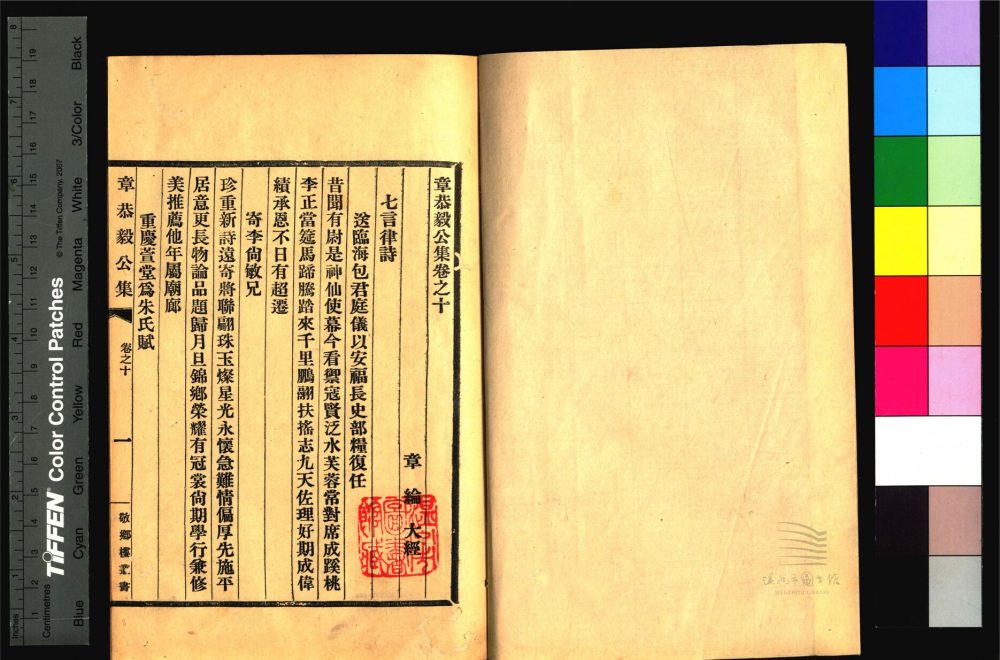 章恭毅公集卷之十
章 綸 大經
七言律詩
送臨海包君庭儀以安福長史部糧復任
昔聞有尉是神仙使幕今看禦寇賢泛水芙蓉常對席成蹊桃
李正當筵馬蹄騰踏來千里鵬翮扶搖志九天佐理好期成偉
績承恩不日有超遷
寄李尙敏兄
珍重新詩遠寄將聯翩珠玉燦星光永懷急難情偏厚先施平
居意更長物論品題歸月旦錦鄉榮耀有冠裳尙期學行兼修
美推薦他年屬廟廊
重慶萱堂爲朱氏賦
章恭毅公集
卷之十
一
敬鄉樓叢書
Inches
Centimetres
1 2 3 4 5 6 7 8
1 2 3 4 5 6 7 8 9 10 11 12 13 14 15 16 17 18 19
TIFFEN® Color Control Patches
© The Tiffen Company, 2007
Blue Cyan Green Yellow Red Magenta White 3/Color Black
溫州市圖書館
WENZHOU LIBRARY